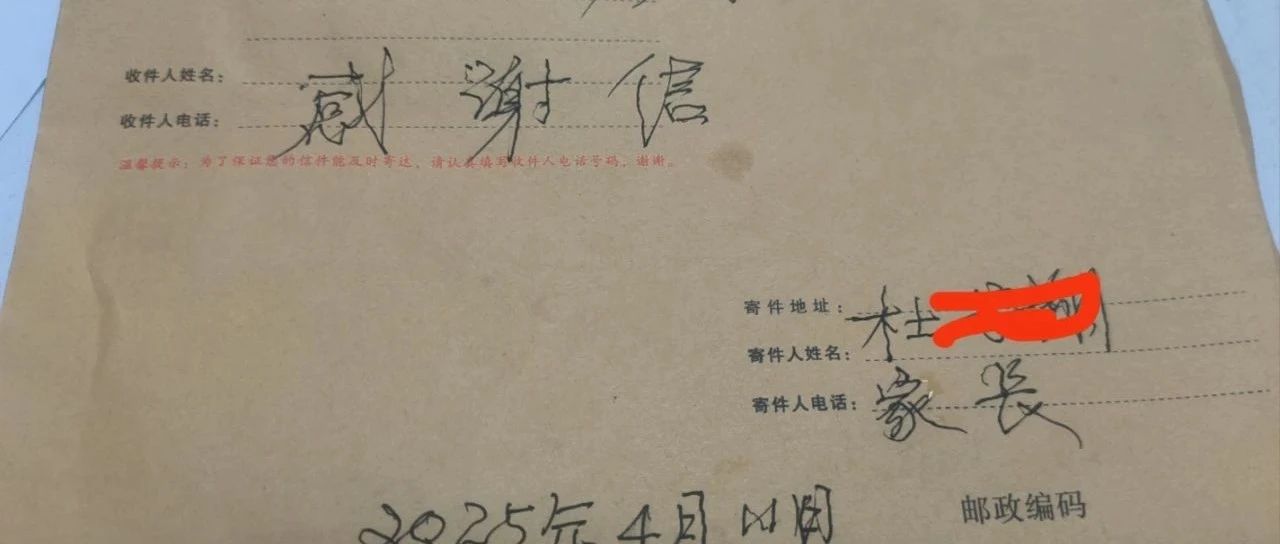 收件人姓名：
感谢信
收件人电话：
温馨提示：为了保证您的信件能及时寄达，请认真填写收件人电话号码，谢谢。
寄件地址：
杜
寄件人姓名：
家长
寄件人电话：
2025年4月
邮政编码